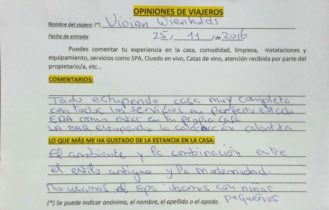 OPINIONES DE VIAJEROS
Nombre del viajero: (*) Vivian Wienholds
Fecha de entrada: 25, 11, 2016
Puedes comentar tu experiencia en la casa, comodidad, limpieza, instalaciones y
equipamiento, servicios como SPA, Cluedo en vivo, Catas de vino, atención recibida por parte del
propietario/a, etc..
COMENTARIOS:
Todo estupendo casa muy completa
con todos los servicios en perfecto estado
como estar en tu propia casa
estupenda la
LO QUE MÁS ME HA GUSTADO DE LA ESTANCIA EN LA CASA:
El ambiente y la combinación entre
el estilo antiguo y la modernidad.
No usamos el spa. Vamos con niños
pequeños
(*) Se puede indicar anónimo, el nombre, el apellido o el apodo.